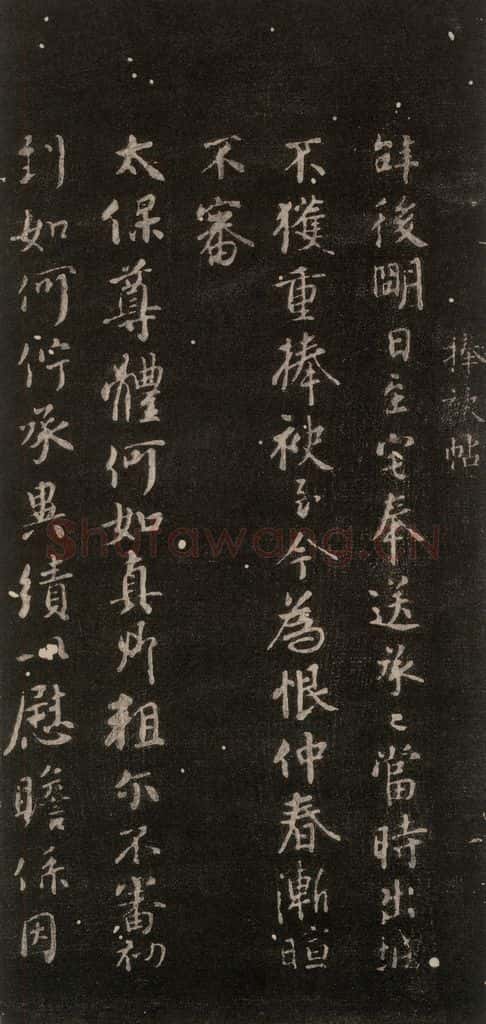 捧袂帖
辞後明日至宅奉送承〻當時出城
不獲重捧袂至今為恨仲春漸暄
不審
太保尊體何如真卿粗尔不審初
到如何佇承異績以慰瞻係因
Shufawang.CN